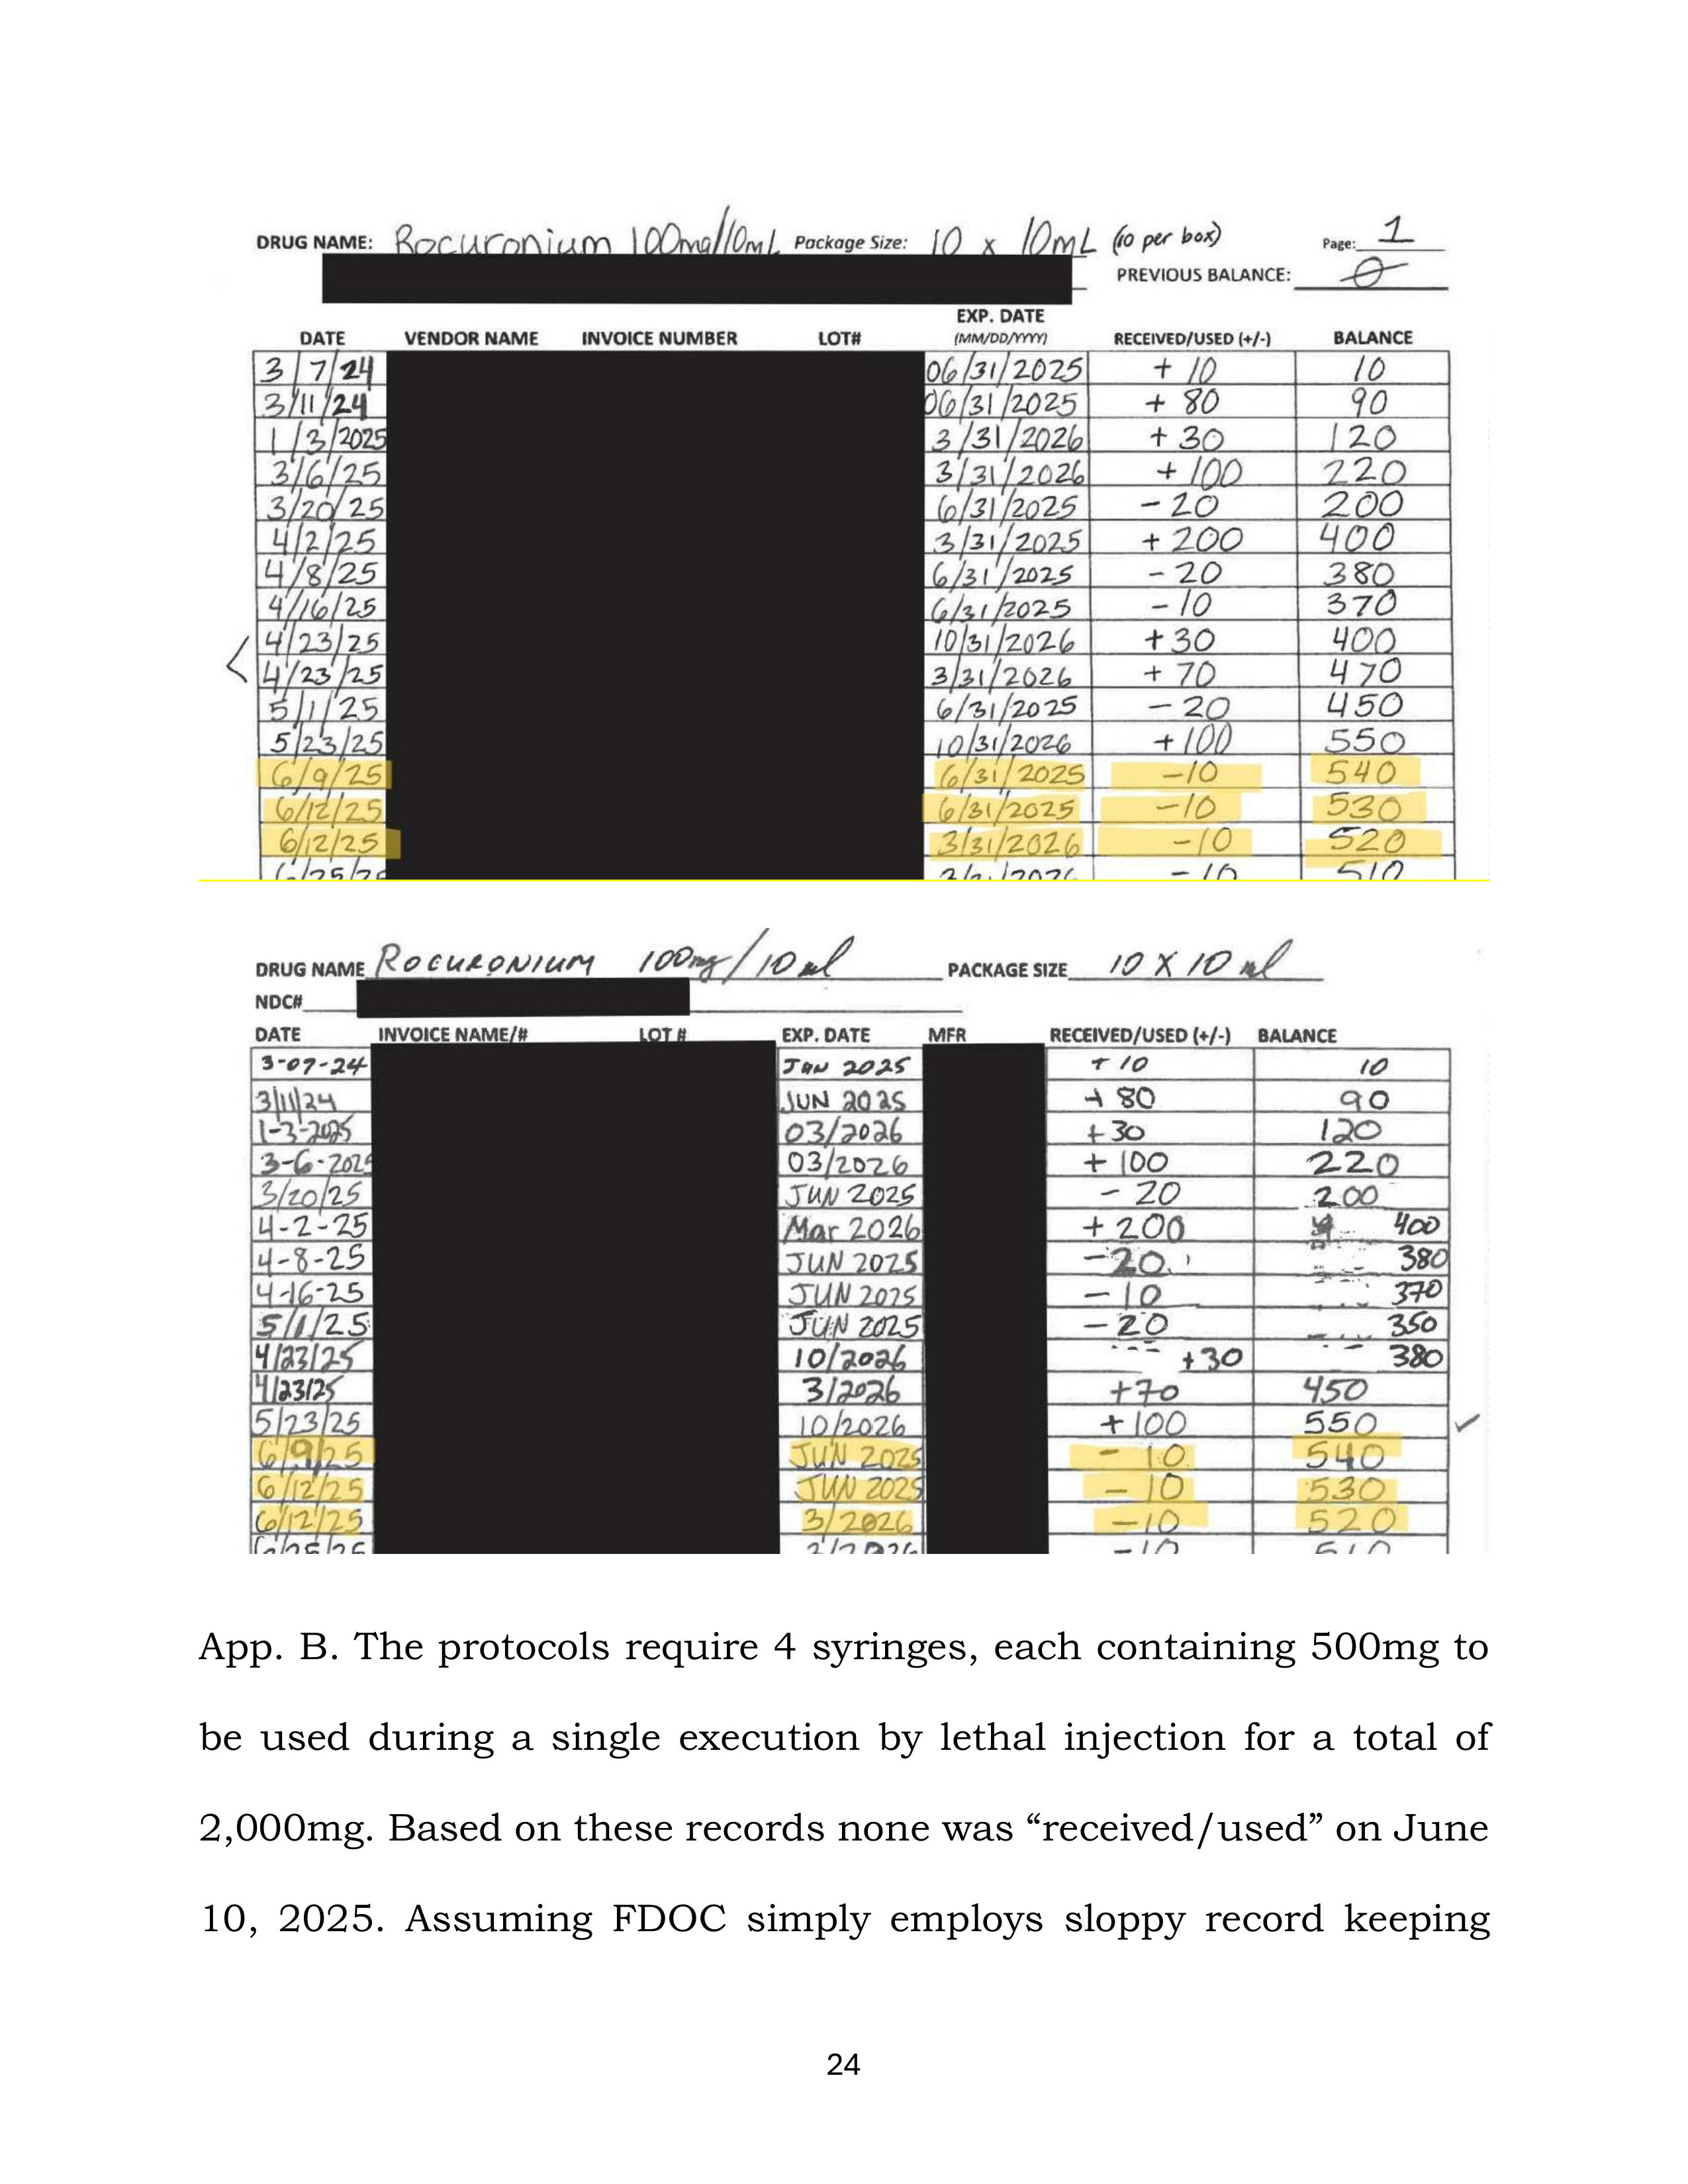 DRUG NAME: Rocuronium 100mg/10mL Package Size: 10 x 10mL (10 per box) Page: 1
PREVIOUS BALANCE: 0
DATE VENDOR NAME INVOICE NUMBER LOT# EXP. DATE (MM/DD/YYYY) RECEIVED/USED (+/-) BALANCE
3/7/24 06/31/2025 + 10 10
3/11/24 06/31/2025 + 80 90
1/3/2025 3/31/2026 + 30 120
3/6/25 3/31/2026 + 100 220
3/20/25 6/31/2025 - 20 200
4/2/25 3/31/2025 + 200 400
4/8/25 6/31/2025 - 20 380
4/16/25 6/31/2025 - 10 370
4/23/25 10/31/2026 + 30 400
4/23/25 3/31/2026 + 70 470
5/1/25 6/31/2025 - 20 450
5/23/25 10/31/2026 +100 550
6/9/25 6/31/2025 -10 540
6/12/25 6/31/2025 -10 530
6/12/25 3/31/2026 -10 520
- 10 510
DRUG NAME ROCURONIUM 100mg/10ml PACKAGE SIZE 10 X 10 ml
NDC#
DATE INVOICE NAME/# LOT # EXP. DATE MFR RECEIVED/USED (+/-) BALANCE
3-07-24 JAN 2025 + 10 10
3/11/24 JUN 2025 + 80 90
1-3-2025 03/2026 +30 120
3-6-2025 03/2026 + 100 220
3/20/25 JUN 2025 - 20 200
4-2-25 Mar 2026 + 200 400
4-8-25 JUN 2025 -20 380
4-16-25 JUN 2025 - 10 370
5/1/25 JUN 2025 - 20 350
4/23/25 10/2026 +30 380
4/23/25 3/2026 +70 450
5/23/25 10/2026 + 100 550
6/9/25 JUN 2025 - 10 540
6/12/25 JUN 2025 - 10 530
6/12/25 3/2026 -10 520
-10 510
App. B. The protocols require 4 syringes, each containing 500mg to
be used during a single execution by lethal injection for a total of
2,000mg. Based on these records none was “received/used” on June
10, 2025. Assuming FDOC simply employs sloppy record keeping
24